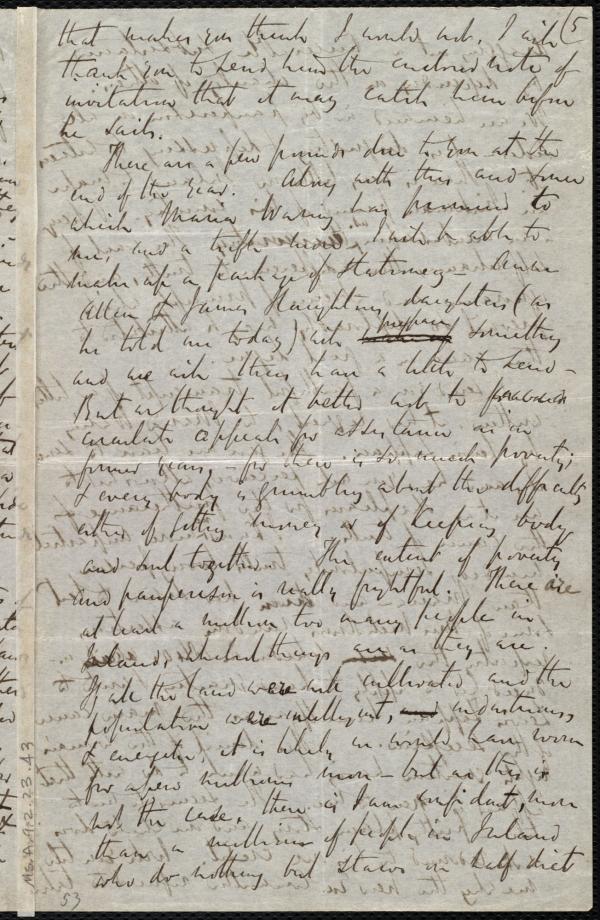 (5
that makes you think I would not. I will
thank you to send him the enclosed note of
invitation that it may catch him before
he sails.
There are a few pounds due to you at the
end of the year. Along with this and some
which Maria Waring has promised to
me, and a trifle more I will be able to
make up a package of Stationery — Anne
Allen & James Haughton's daughters (as
he told me today) will prepare something
and we will have a little to send —
But we thought it better not to
circulate appeals for assistance as in
former years, — for there is so much poverty,
& every body is grumbling about the difficulty
either of getting money or of keeping body
and soul together. The extent of poverty
and pauperism is really frightful. There are
at least a million too many people in
Ireland, whilst things are as they are.
If all the land were well cultivated and the
population were intelligent, and industrious,
& energetic, it is likely we would have room
for a few millions more — but as this is
not the case, there is I am confident, more
than a million of people in Ireland
who do nothing but starve on half diet
53
Ms.A.9.2.23.43